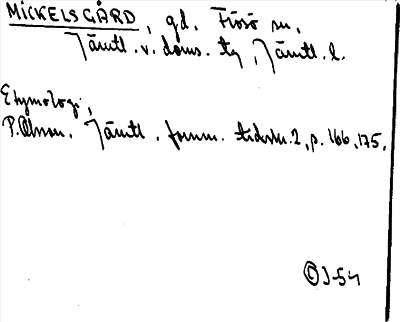 MICKELSGÅRD, gd. Frösö sn.
Jämtl. v. doms. tg, Jämtl. l.
Etymologi,
P. Olsson. Jämtl. fornm. tidskr. 2, p. 166, 175.
©J-54